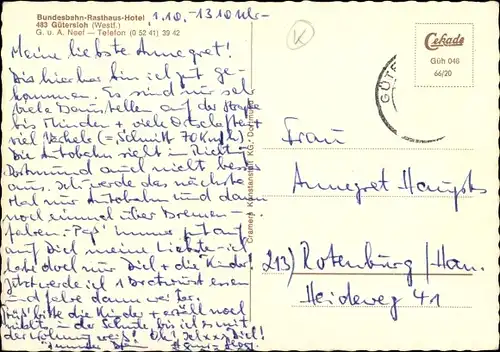 Bundesbahn-Rasthaus-Hotel
483 Gütersloh (Westf.)
G. u. A. Neef — Telefon (0 52 41) 39 42
1.10. - 13 10 Uhr -
Meine liebste Annegret!
Bis hierher bin ich gut ge-
kommen. Es sind nur sehr
viele Baustellen auf der Strecke
bis Minden + viele Ortschaften +
viel Verkehr (= Schnitt 70 Km/h)
Die Autobahn sieht in Richtung
Dortmund auch nicht besser
aus. Ich werde das nächste
Mal nur Autobahn und dann
noch einmal über Bremen
fahren. - Pass' immer gut auf
auf Dich meine Liebste - ich
habe doch nur Dich + die Kinder!
Jetzt werde ich 1 Bratwurst essen
und fahre dann weiter.
bitte die Kinder + erzähl noch
in der Schule, bis ich es mit
der Wohnung weiß! Ok?
Cramers Kunstanstalt KG, Dortmund
Cekade
Güh 040
66/20
GÜTE
K
Frau
Annegret
213) Rotenburg / Han.
Heideweg 41